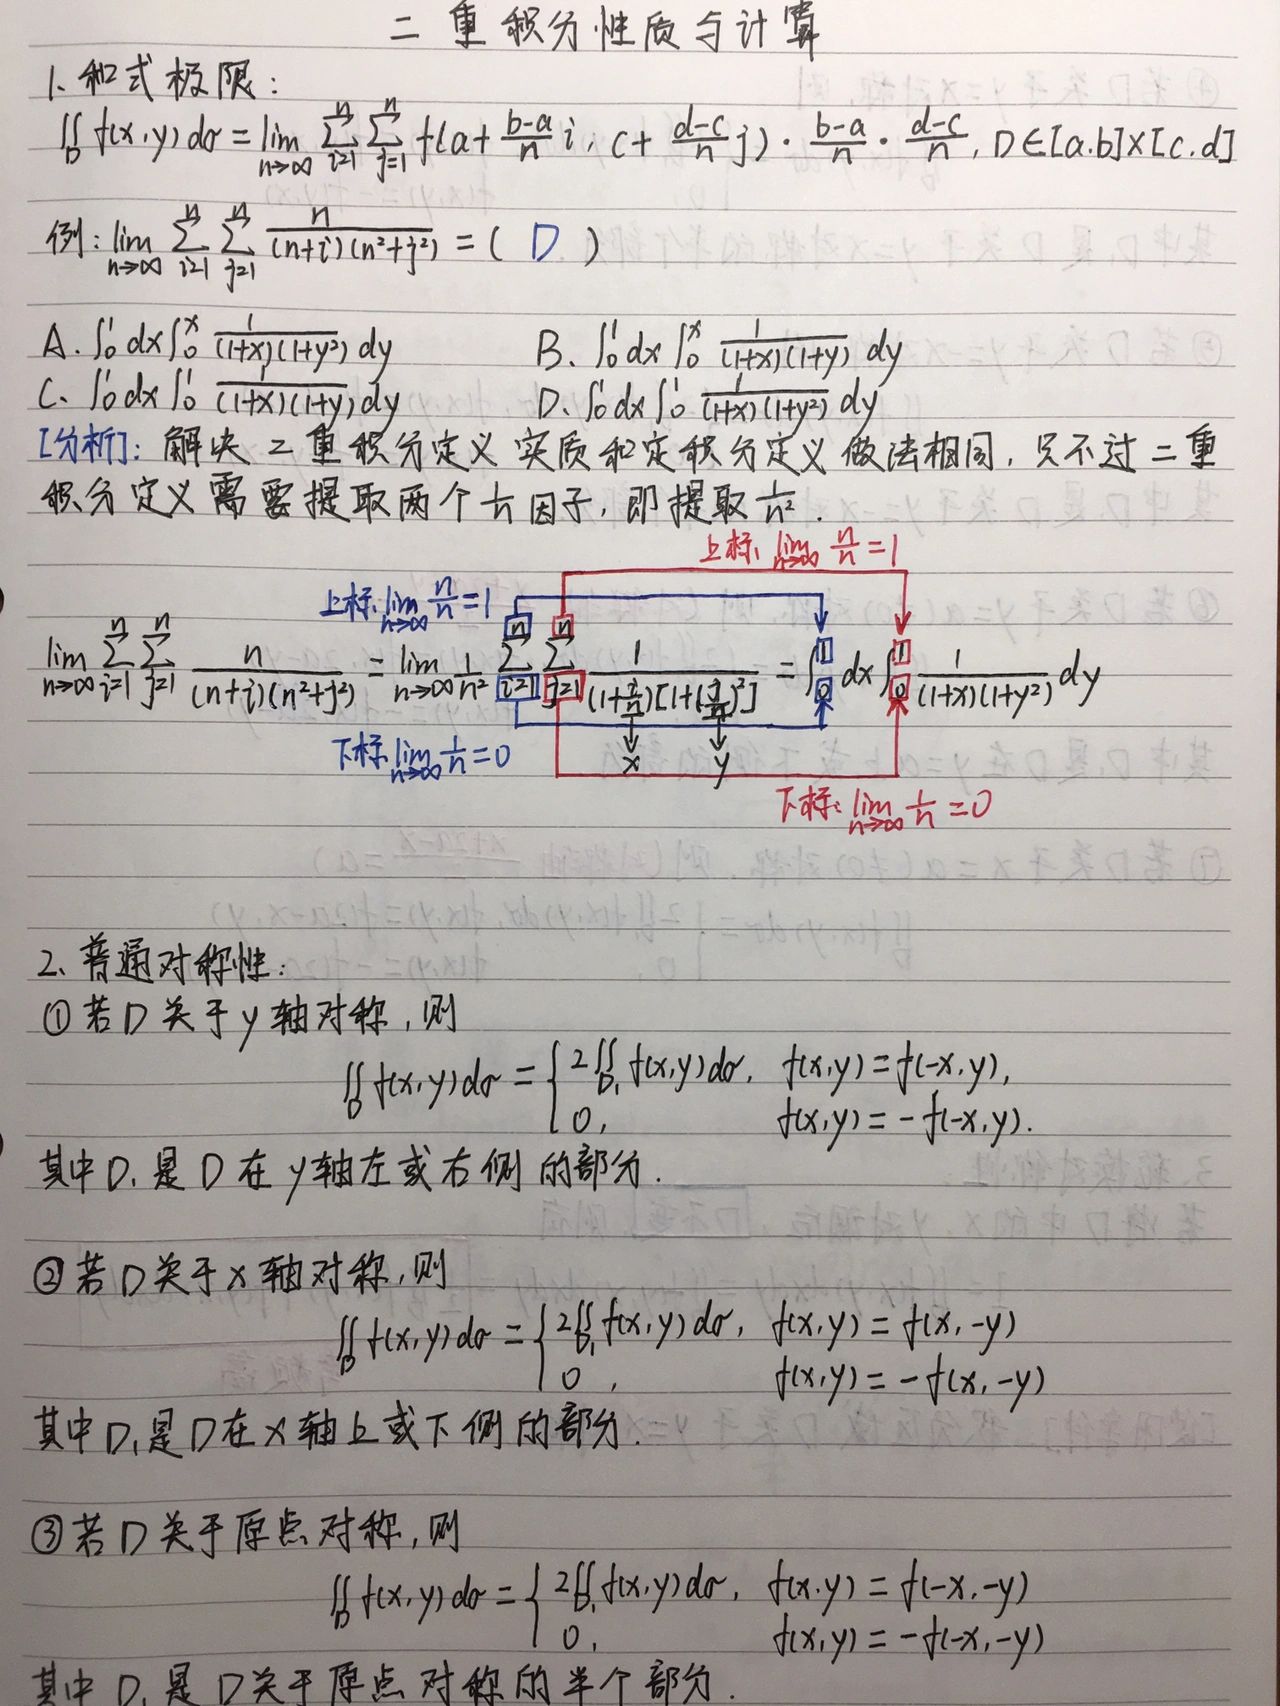 二重积分性质与计算
1、和式极限：
∬_D f(x,y)dσ = lim_{n→∞} ∑_{i=1}^{n} ∑_{j=1}^{n} f(a + \frac{b-a}{n} i, c + \frac{d-c}{n} j) · \frac{b-a}{n} · \frac{d-c}{n}, D∈[a.b]×[c.d]
例：lim_{n→∞} ∑_{i=1}^{n} ∑_{j=1}^{n} \frac{n}{(n+i)(n²+j²)} = ( D )
A. ∫_0^1 dx ∫_0^x \frac{1}{(1+x)(1+y²)} dy B. ∫_0^1 dx ∫_0^x \frac{1}{(1+x)(1+y)} dy
C. ∫_0^1 dx ∫_0^1 \frac{1}{(1+x)(1+y)} dy D. ∫_0^1 dx ∫_0^1 \frac{1}{(1+x)(1+y²)} dy
[分析]：解决二重积分定义实质和定积分定义做法相同，只不过二重
积分定义需要提取两个\frac{1}{n}因子，即提取\frac{1}{n²}.
上标：lim_{n→∞} \frac{n}{n} = 1
上标：lim_{n→∞} \frac{n}{n} = 1
lim_{n→∞} ∑_{i=1}^{n} ∑_{j=1}^{n} \frac{n}{(n+i)(n²+j²)} = lim_{n→∞} \frac{1}{n²} ∑_{i=1}^{n} ∑_{j=1}^{n} \frac{1}{(1+\frac{i}{n})[1+(\frac{j}{n})²]} = ∫_0^1 dx ∫_0^1 \frac{1}{(1+x)(1+y²)} dy
下标：lim_{n→∞} \frac{1}{n} = 0 x y
下标：lim_{n→∞} \frac{1}{n} = 0
2、普通对称性：
① 若D关于y轴对称，则
∬_D f(x,y)dσ = { 2∬_{D₁} f(x,y)dσ, f(x,y) = f(-x,y),
0, f(x,y) = -f(-x,y).
其中D₁是D在y轴左或右侧的部分.
② 若D关于x轴对称，则
∬_D f(x,y)dσ = { 2∬_{D₁} f(x,y)dσ, f(x,y) = f(x,-y)
0, f(x,y) = -f(x,-y)
其中D₁是D在x轴上或下侧的部分.
③ 若D关于原点对称，则
∬_D f(x,y)dσ = { 2∬_{D₁} f(x,y)dσ, f(x.y) = f(-x,-y)
0, f(x,y) = -f(-x,-y)
其中D₁是D关于原点对称的半个部分.